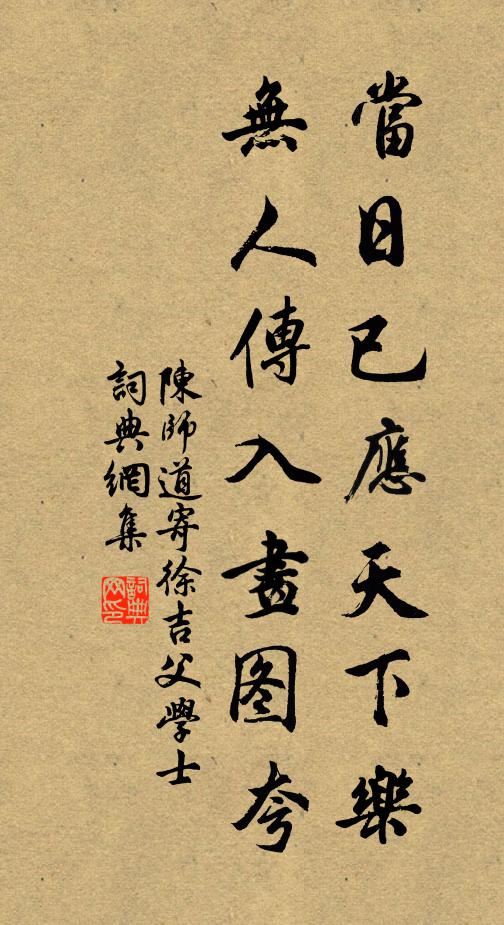 當日已應天下樂
無人傳入畫图夸
陳師道寄徐吉父學士
詞典網集
詞典网印